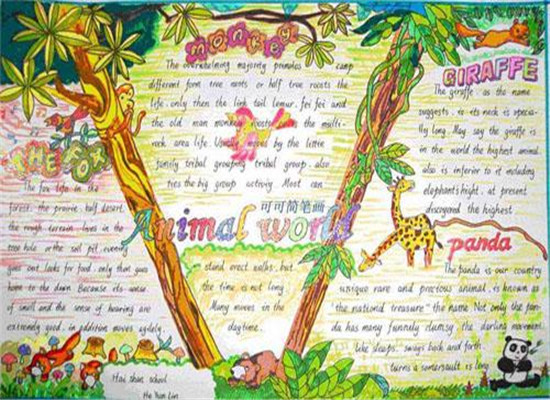 Monkey
The overwhelming majority primates camp
different form tree roosts or half tree roosts the
life, only then the link tail lemur, fei fei and
the old man monkey roosts in the multi-
rock area life. Usually moves by the little
family tribal grouping tribal group, also
ties the big group activity. Most can
stand erect walks, but
the time is not long
Many moves in the
daytime.
THE FOX
The fox lifes in the
forest, the prairie, half desert,
the rough terrain lives in the
tree hole or the soil pit, evening
goes out looks for food, only then goes
home to the dawn. Because its sense
of smell and the sense of hearing are
extremely good, in addition moves agilely,
Animal world
可可简笔画
GIRAFFE
The giraffe, as the name
suggests, is its neck is specia-
lly long. May say the giraffe is
in the world the highest animal,
also is inferior to it including
elephant's hight, at present
discovered the highest
panda
The panda is our country
unique rare and precious animal, is known as
"the national treasure" the name. Not only the pan-
da has many funnily clumsy, the darling movement,
like sleeps, swings back and forth,
turns a somersault is long
Hai shan school
He Yan Lin